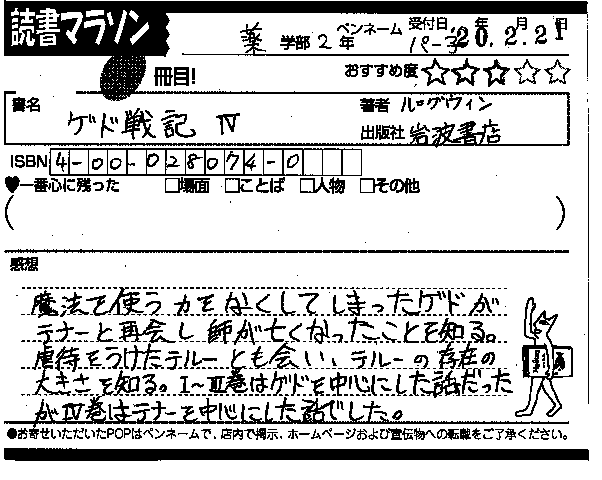 読書マラソン
薬 学部 2 年 ペンネーム 受付日 '20. 2. 21 年 月 日
冊目! おすすめ度 ☆☆☆☆☆
書名 ゲド戦記 Ⅳ
著者 ル=グウィン
出版社 岩波書店
ISBN 4-00-028074-0
♥一番心に残った □場面 □ことば □人物 □その他
( )
感想
魔法を使う力をなくしてしまったゲドが
テナーと再会し師が亡くなったことを知る。
虐待をうけたテルーとも会い、テルーの存在の
大きさを知る。Ⅰ～Ⅲ巻はゲドを中心にした話だった
がⅣ巻はテナーを中心にした話でした。
●お寄せいただいたPOPはペンネームで、店内で掲示、ホームページおよび宣伝物への転載をご了承ください。